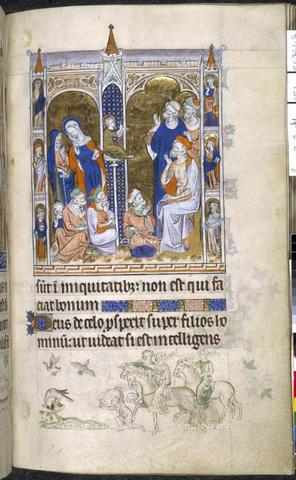 sūt i iniquitatibȝ: non est qui fa
ciat bonum
Deus de celo ꝓspexit super filios ho
minū: ut uideat si est intelligens